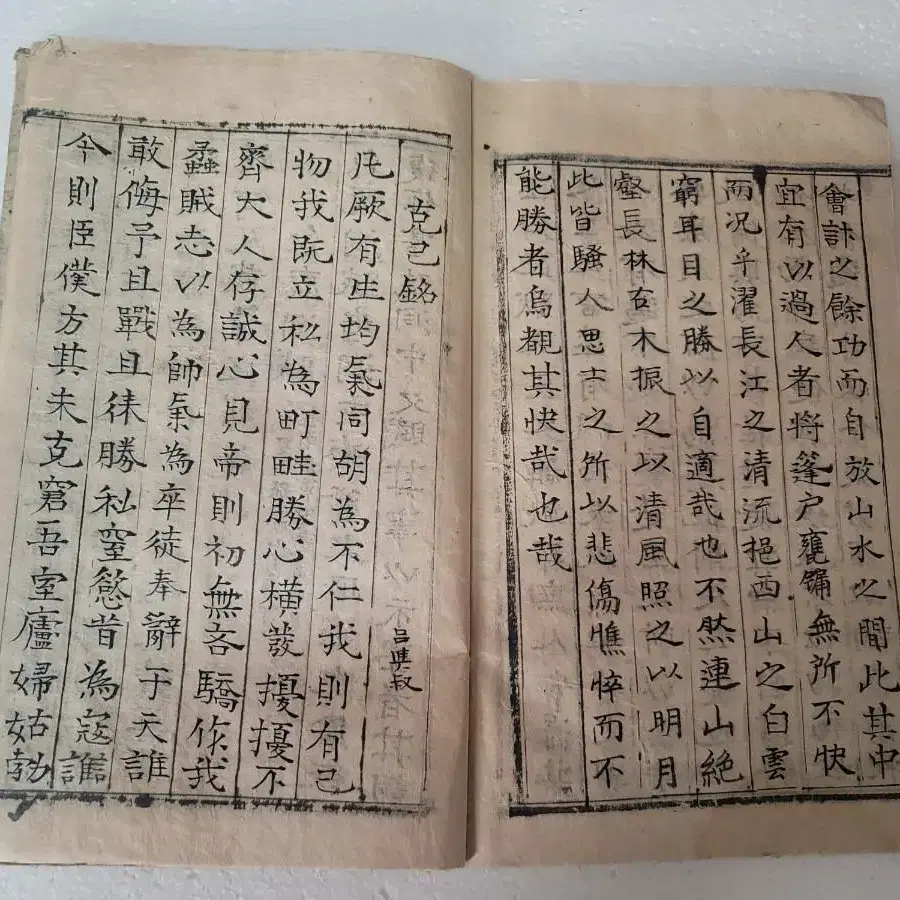 會計之餘功而自放山水之間此其中
宜有以過人者將篷戶甕牖無所不快
而况乎濯長江之清流挹西山之白雲
窮耳目之勝以自適哉也不然連山絶
壑長林古木振之以清風照之以明月
此皆騷人思士之所以悲傷憔悴而不
能勝者烏覩其快哉也哉
克己銘 呂與叔
凡厥有生均氣同胡為不仁我則有己
物我既立私為町畦勝心橫發擾擾不
齊大人存誠心見帝則初無吝驕作我
蟊賊志以為帥氣為卒徒奉辭于天誰
敢侮予且戰且徠勝私窒慾昔為寇讎
今則臣僕方其未克窘吾室廬婦姑勃